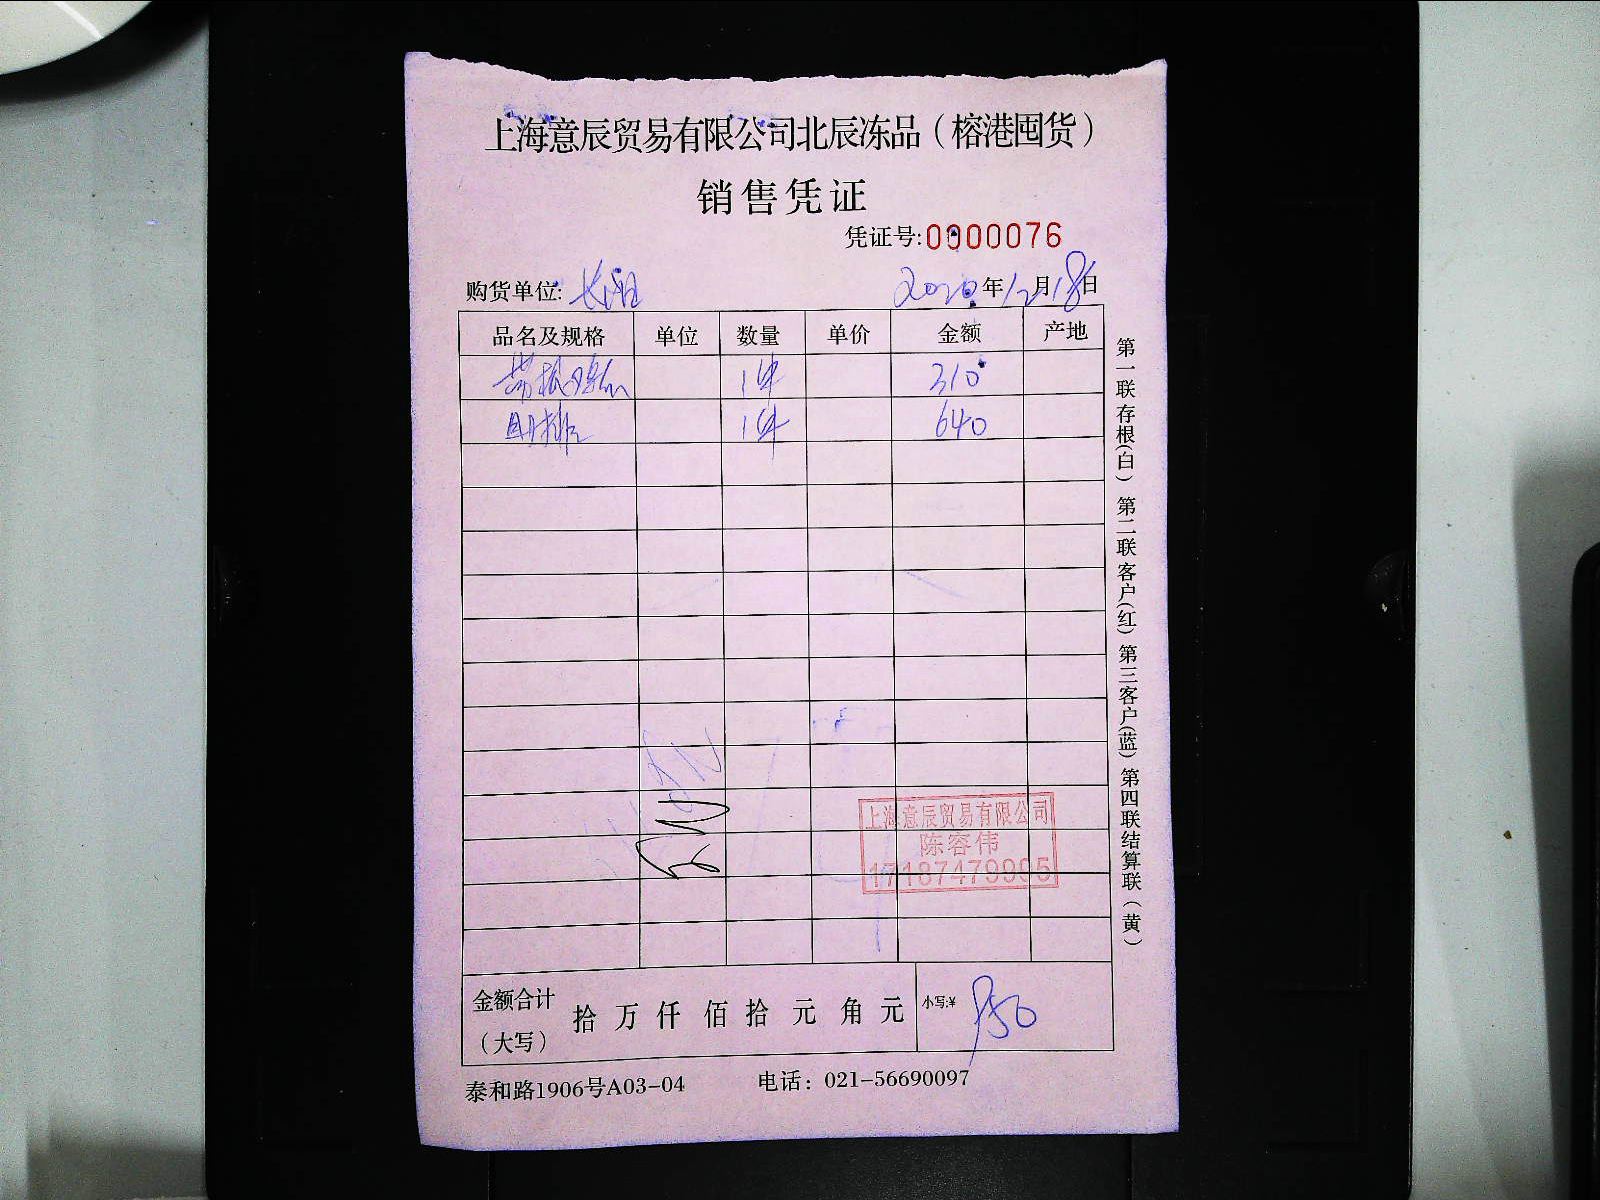 上海意辰贸易有限公司北辰冻品（榕港囤货）
销售凭证
凭证号:0000076
购货单位:
2020年12月18日
品名及规格 单位 数量 单价 金额 产地
1件 310
肋排 1件 640
第一联存根(白) 第二联客户(红) 第三客户(蓝) 第四联结算联（黄）
上海意辰贸易有限公司
陈容伟
17187479905
金额合计（大写） 拾 万 仟 佰 拾 元 角 元 小写:¥ 950
泰和路1906号A03-04 电话：021-56690097